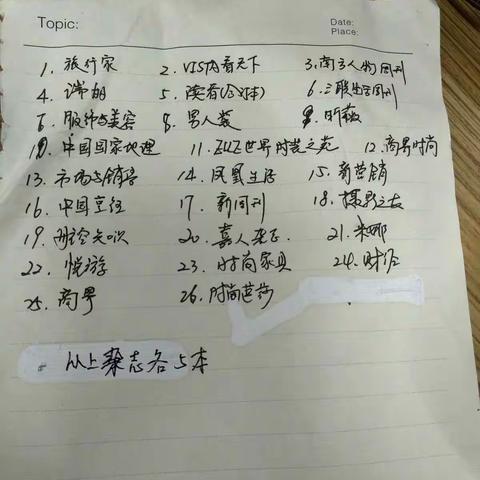 Topic:
Date:
Place:
1. 旅行家 2. VISTA看天下 3. 南方人物周刊
4. 瑞丽 5. 读者(合订本) 6. 三联生活周刊
7. 服饰与美容 8. 男人装 9. 昕薇
10. 中国国家地理 11. ELLE世界时装之苑 12. 商界时尚
13. 市场与销售 14. 凤凰生活 15. 新营销
16. 中国烹饪 17. 新周刊 18. 摄影之友
19. 航空知识 20. 嘉人 21. 米娜
22. 悦游 23. 时尚家具 24. 财经
25. 商界 26. 时尚芭莎
以上杂志各5本